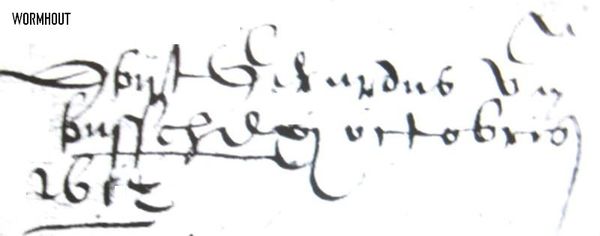 WORMHOUT
Obijt Gerardus van
bussche octobris
1612